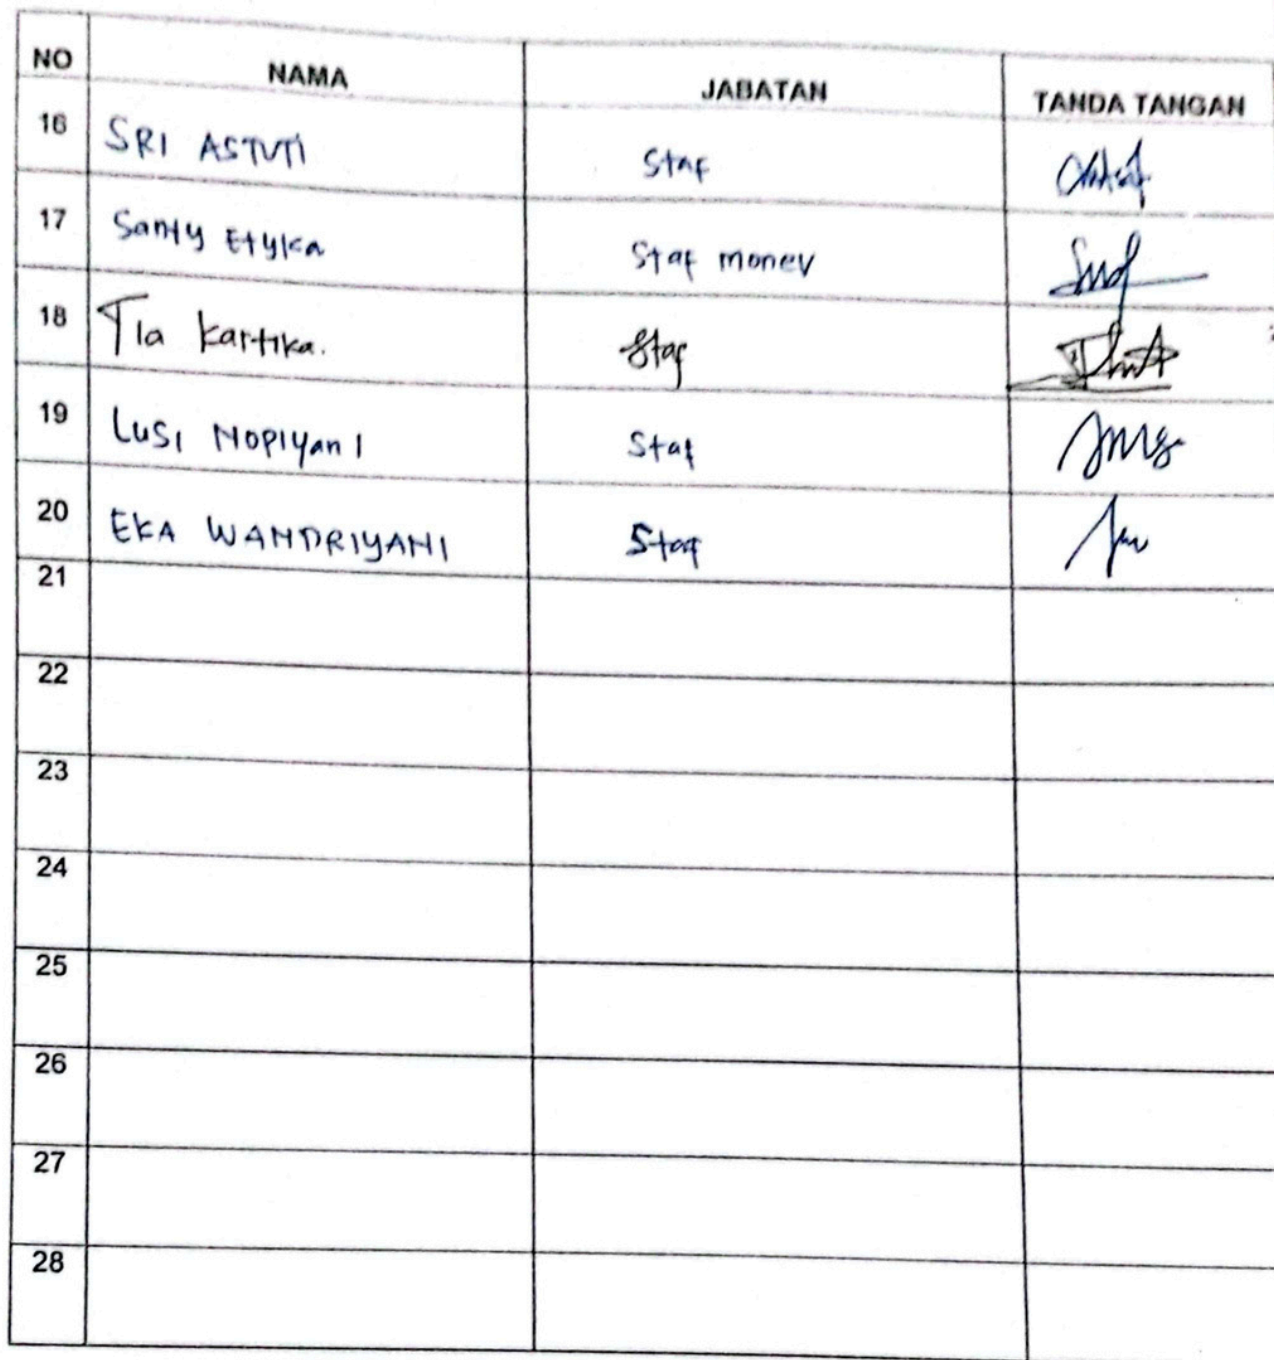 NO NAMA JABATAN TANDA TANGAN
16 SRI ASTUTI Staf
17 Santy Etyka Staf monev
18 Tia Kartika. Staf
19 Lusi Nopiyani Staf
20 EKA WANDRIYANI Staf
21
22
23
24
25
26
27
28